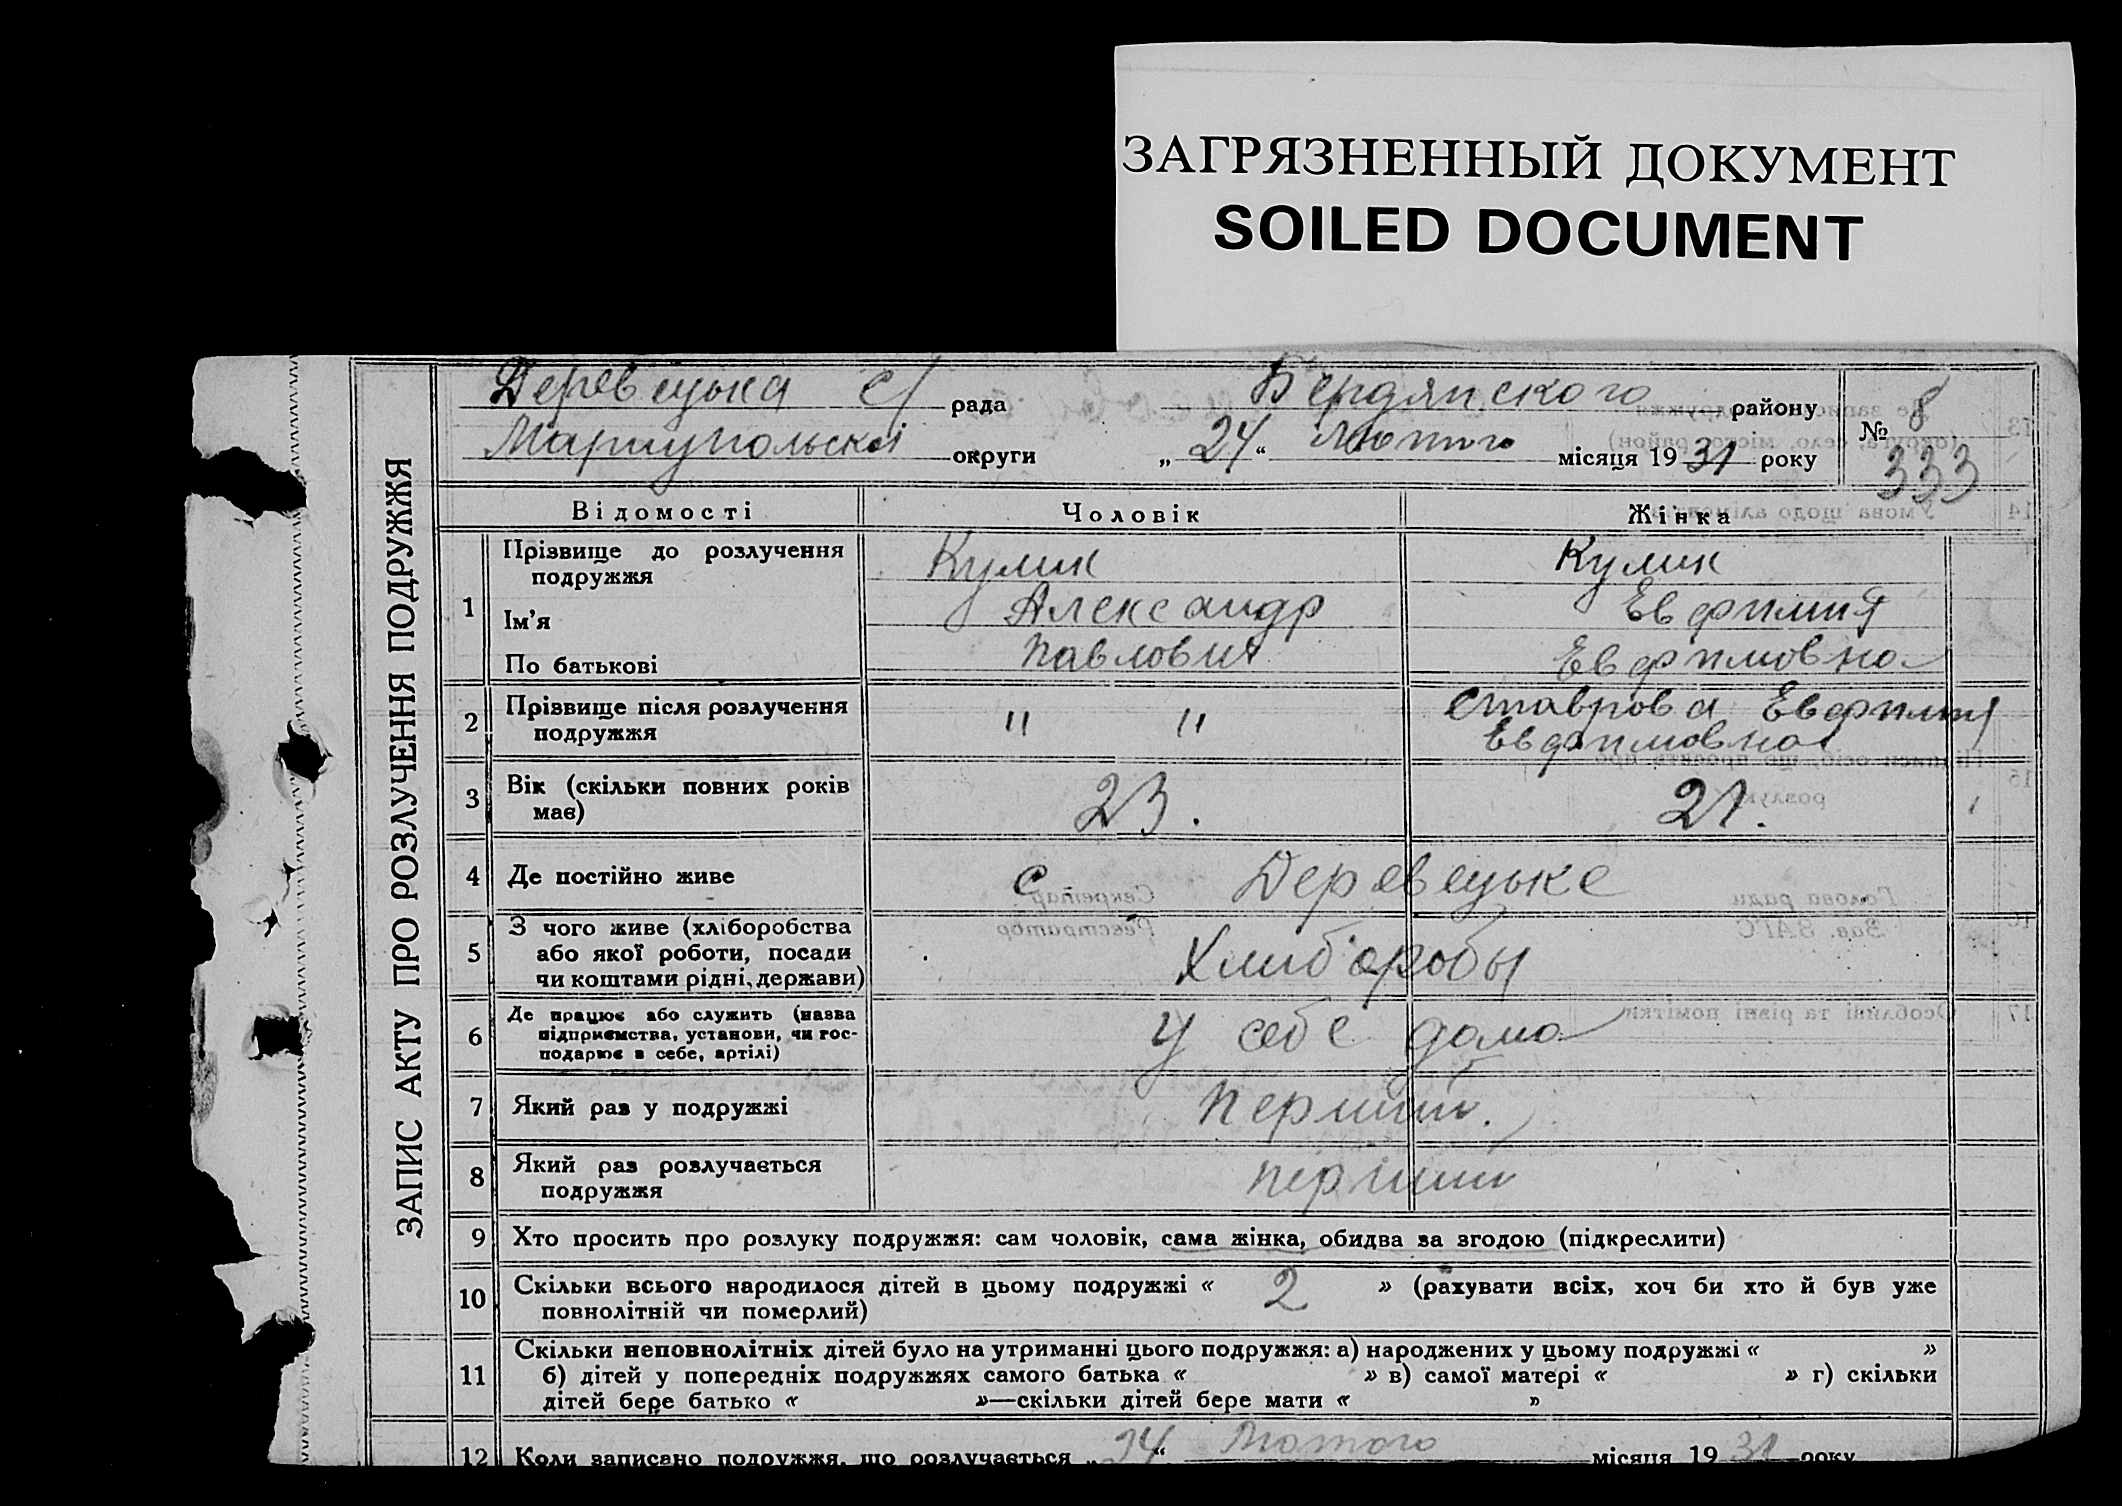 ЗАГРЯЗНЕННЫЙ ДОКУМЕНТ
SOILED DOCUMENT
ЗАПИС АКТУ ПРО РОЗЛУЧЕННЯ ПОДРУЖЖЯ
Деревецька с/ рада Бердянского району
Мариупольскоі округи „ 24 “ Лютого місяця 19 31 року
№ 8
333
Відомості Чоловік Жінка
1 Прізвище до розлучення подружжя Кулик Кулик
Ім’я Александр Евфимия
По батькові Павлович Евфимовна
2 Прізвище після розлучення подружжя " " Ставрова Евфимия
Евфимовна
3 Вік (скільки повних років має) 23. 21.
4 Де постійно живе с Деревецьке
5 З чого живе (хліборобства
або якої роботи, посади
чи коштами рідні, держави) Хлиб'оробы
6 Де працює або служить (назва
підприємства, установи, чи гос-
подарює в себе, артілі) У себе дома
7 Який раз у подружжі перший.
8 Який раз розлучається
подружжя перший
9 Хто просить про розлуку подружжя: сам чоловік, сама жінка, обидва за згодою (підкреслити)
10 Скільки всього народилося дітей в цьому подружжі « 2 » (рахувати всіх, хоч би хто й був уже
повнолітній чи померлий)
11 Скільки неповнолітніх дітей було на утриманні цього подружжя: а) народжених у цьому подружжі « »
б) дітей у попередніх подружжях самого батька « » в) самої матері « » г) скільки
дітей бере батько « »—скільки дітей бере мати « »
12 Коли записано подружжя, що розлучається „ 24 “ Лютого місяця 19 31 року